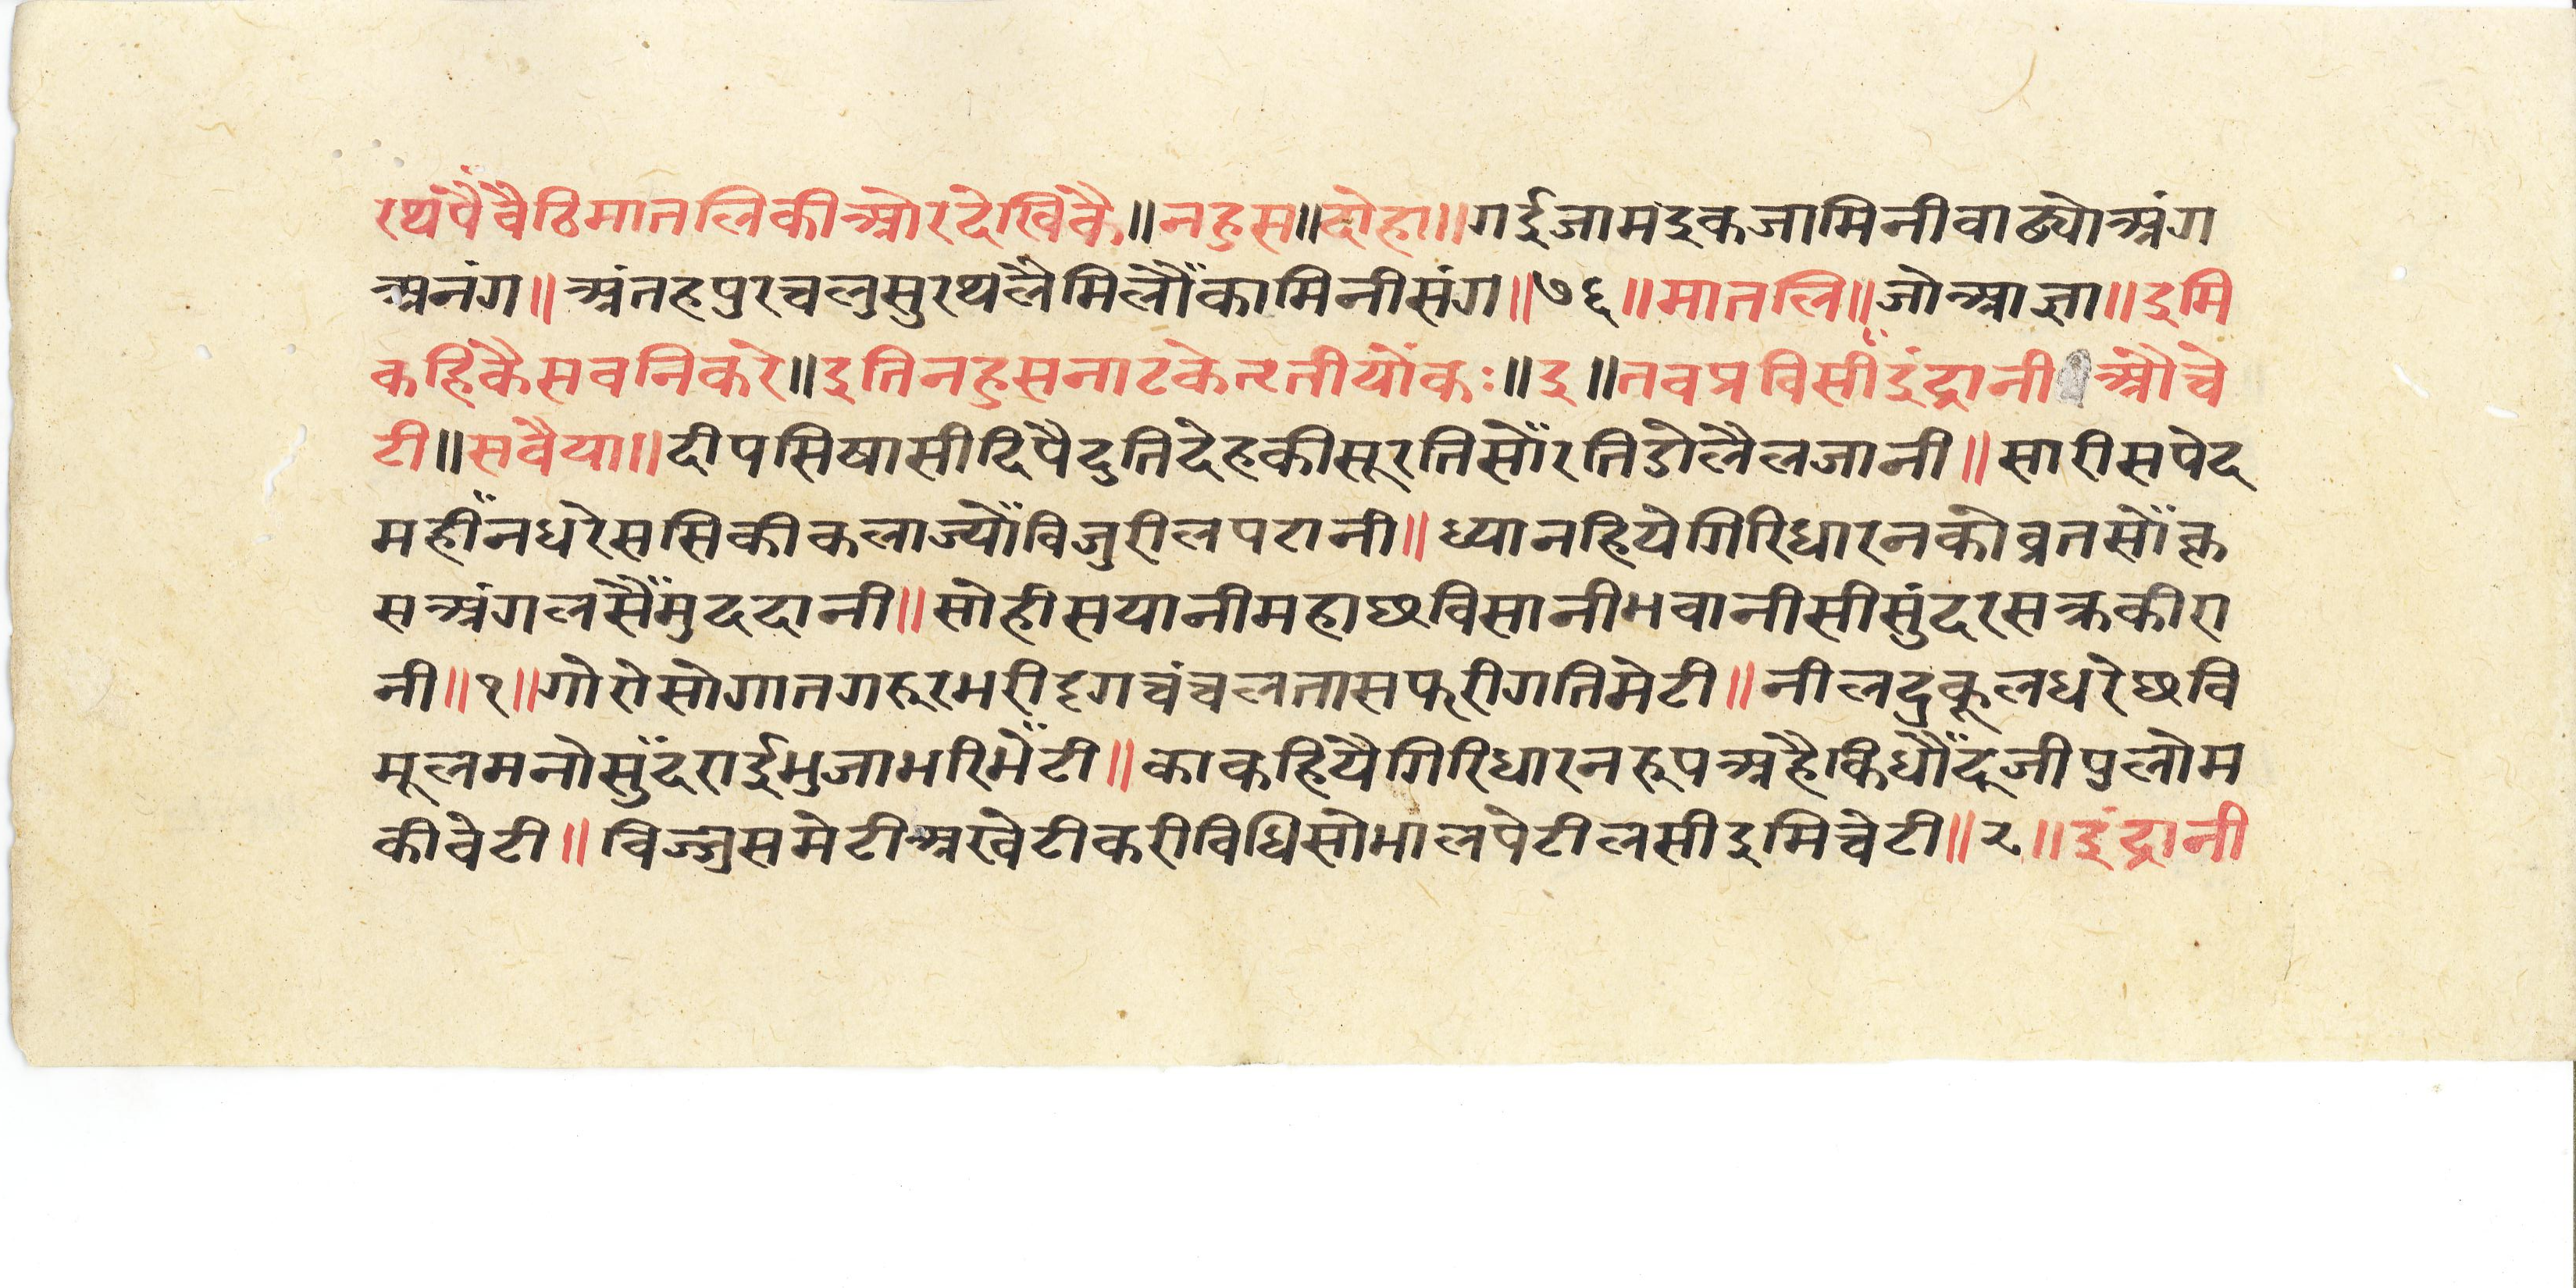 रथपैंवैठिमातलिकीओरदेखिकै॥नहुस॥दोहा॥गईजामइकजामिनीवाढ्योअंग
अनंग॥अंतहपुरचलुसुरथलैमिलौंकामिनीसंग॥७६॥मातलि॥जोआज्ञा॥इमि
कहिकैसवनिकरे॥इतिनहुसनाटकेतृतीयोंकः॥इ॥तवप्रविसींइंद्रानी औचे
टी॥सवैया॥दीपसिषासीदिपैदुतिदेहकीसूरतिसोंरतिडोलैलजानी॥सारीसपेद
महींनधरेससिकीकलाज्योंविजुरीलपटानी॥ध्यानहियेगिरिधारनकोव्रतसोंकृ
सअंगलसैंमुददानी॥सोहीसयानीमहाछविसानीभवानीसीसुंदरसक्रकीरा
नी॥१॥गोरोसोगातगरूरभरीदृगचंचलतासफरीगतिमेटी॥नीलदुकूलधरेछवि
मूलमनोसुंदराईभुजाभरिभेंटी॥काकहियैगिरिधारनरूपअहैकिधौंदूजीपुलोम
कीवेटी॥विज्जुसमेटीअखेटीकरीविधिसोभालपेटीलसीइमिचेटी॥२॥इंद्रानी